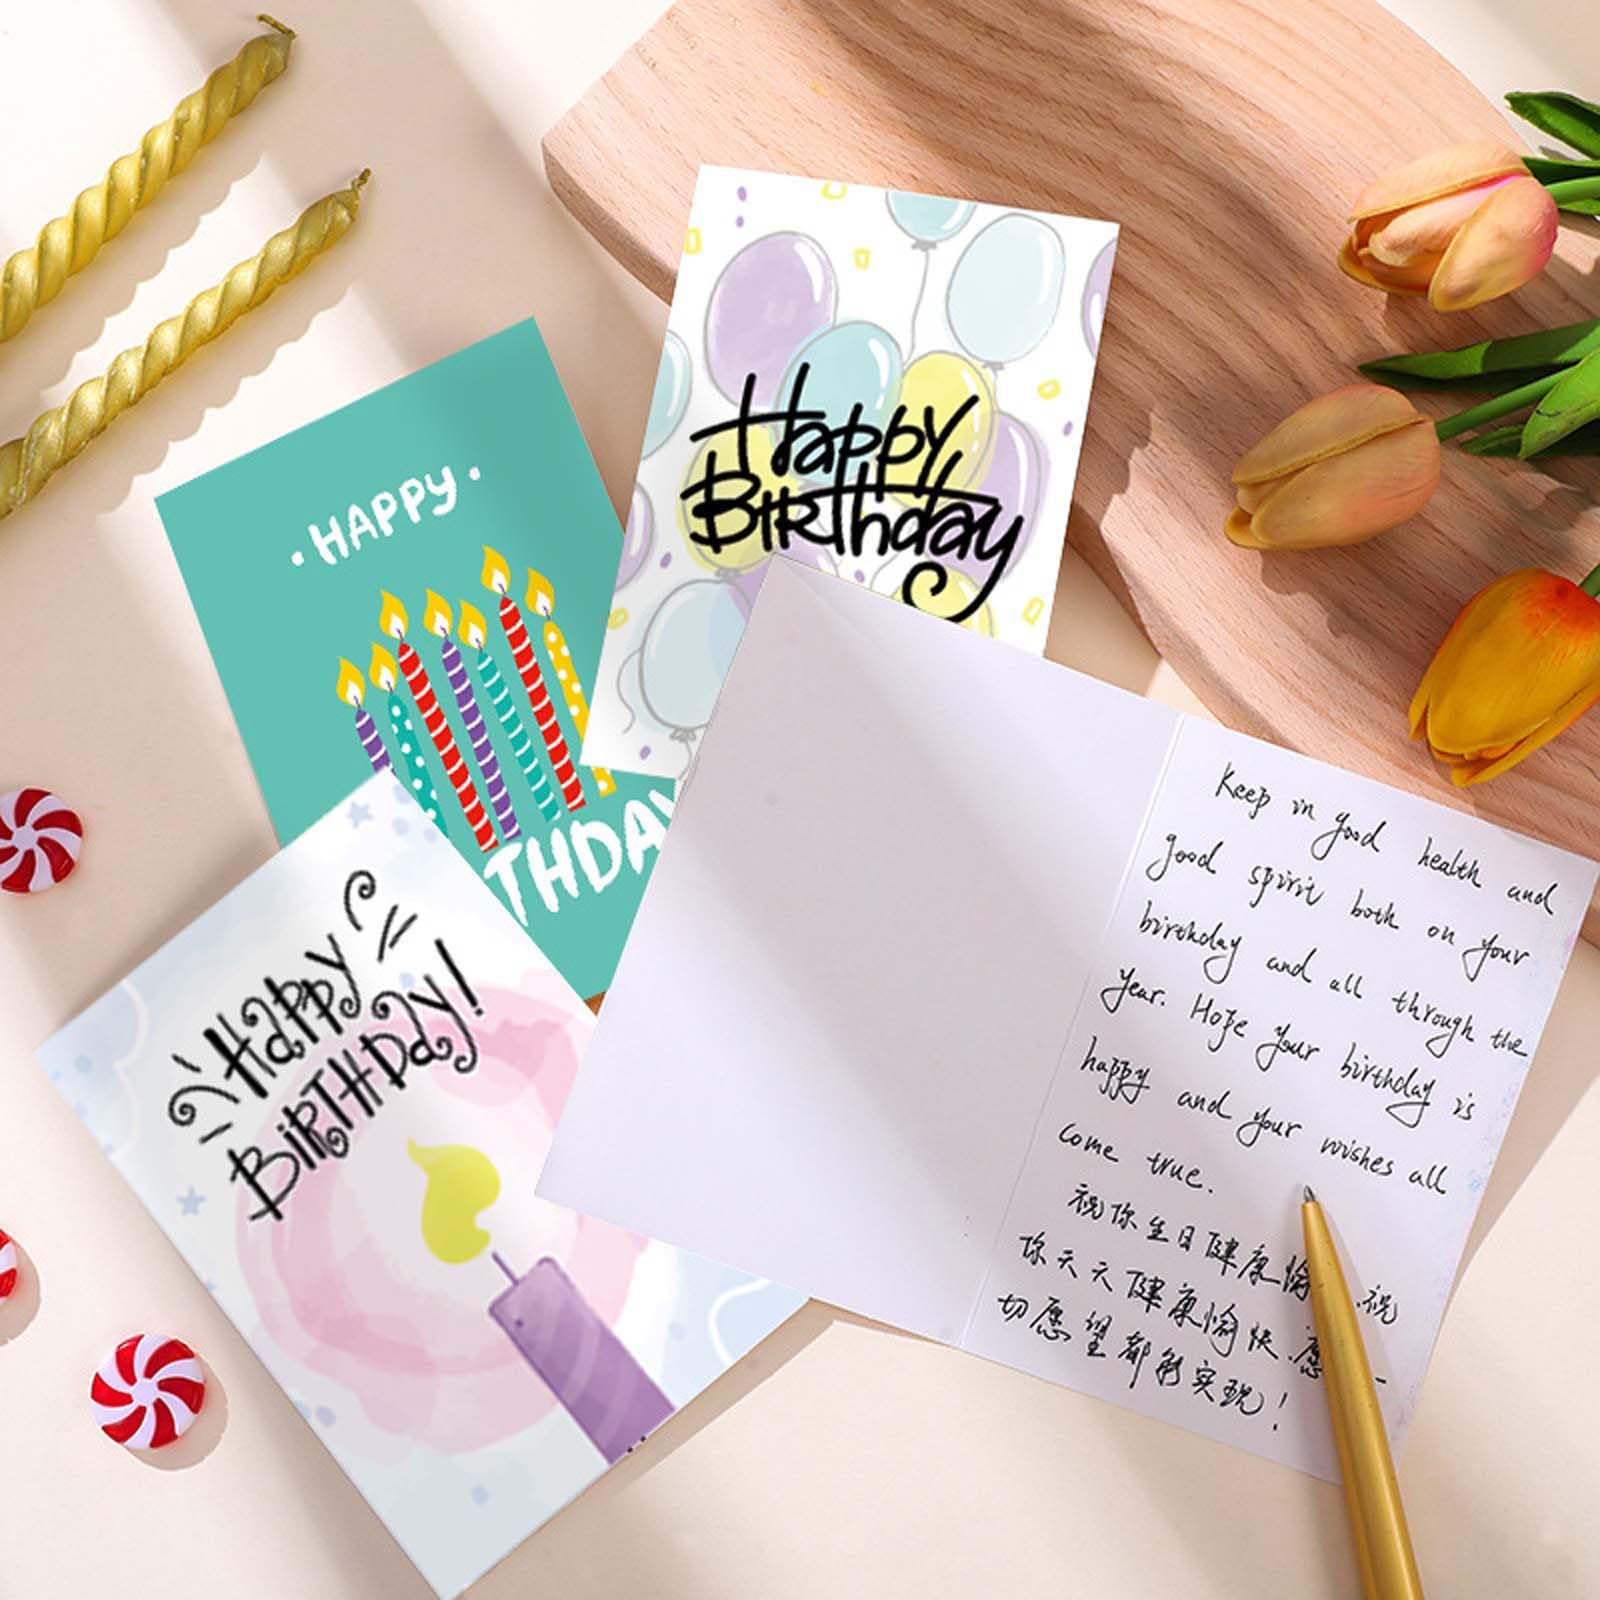 HAPPY
THDAY
Happy
Birthday
Happy
BiRTHDay!
Keep in good health and
good spirit both on your
birthday and all through the
year. Hope your birthday is
happy and your wishes all
come true.
祝你生日健康愉 祝
你天天健康愉快.愿一
切愿望都能实现!